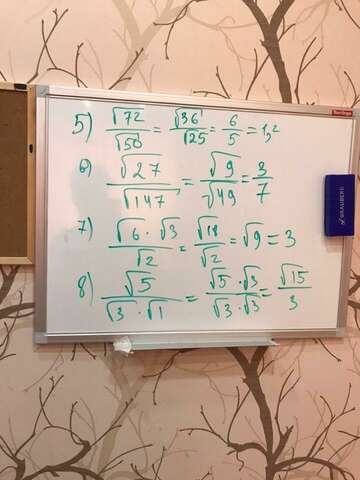 5) √72/√50 = √36/√25 = 6/5 = 1,2
6) √27/√147 = √9/√49 = 3/7
7) √6 · √3/√2 = √18/√2 = √9 = 3
8) √5/√3 · √1 = √5 · √3/√3 · √3 = √15/3
BRAUBERG